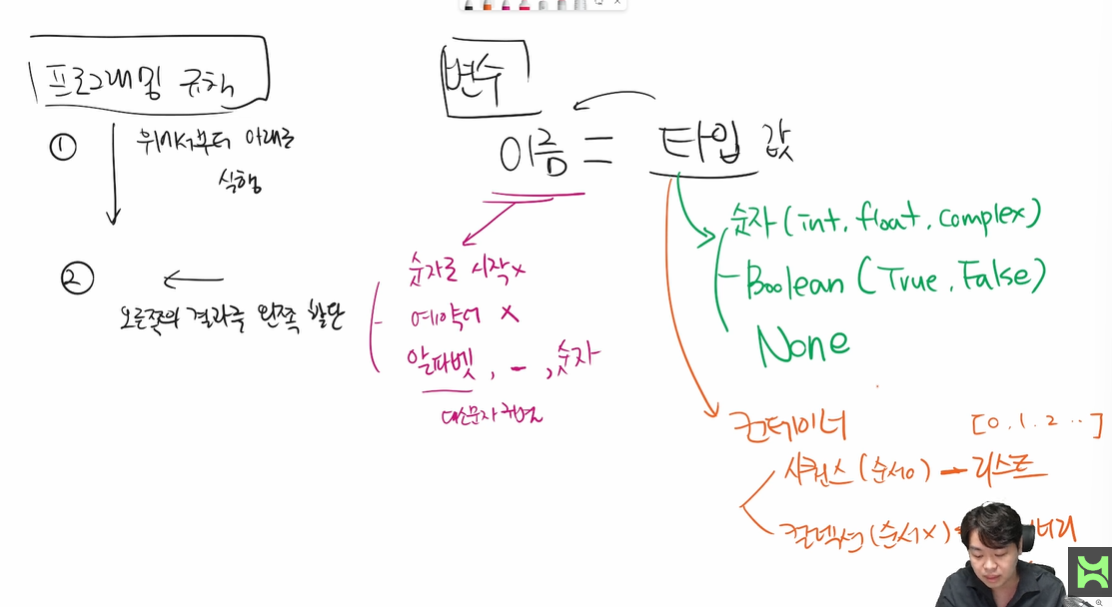 프로그래밍 규칙
① 위에서부터 아래로
실행
②
오른쪽의 결과를 왼쪽 할당
변수
이름 = 타입 값
숫자로 시작 x
예약어 x
알파벳, _, 숫자
대소문자 구분
숫자 (int, float, complex)
Boolean (True, False)
None
컨테이너 [0, 1, 2 ..]
시퀀스 (순서o) - 리스트
컬렉션 (순서x)